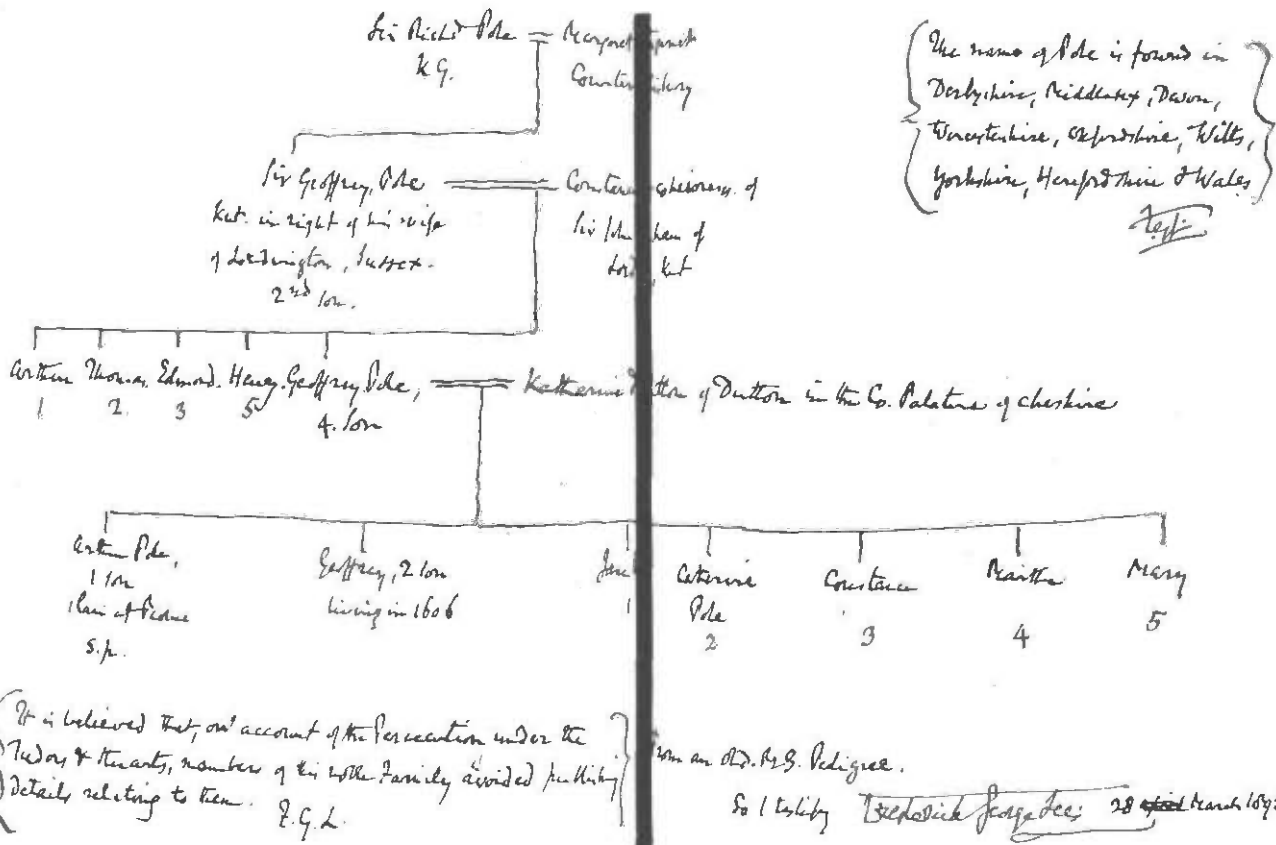 Sir Richd Pole = Margaret
K.G. Countess
The name of Pole is found in
Derbyshire, Middlesex, Devon,
Worcestershire, Oxfordshire, Wilts,
Yorkshire, Herefordshire & Wales
Sir Geoffrey, Pole
Knt. in right of his wife
of Lordington, Sussex.
2nd son.
of
Sir John of
Knt
Arthur Thomas. Edmond. Henry. Geoffrey Pole, Katharine of Dutton in the Co. Palatine of Cheshire
1 2. 3 5 4. son
Arthur Pole,
1 son
slain at Rome
s.p.
Geoffrey, 2 son
living in 1606
1
Catherine
Pole
2
Constance
3
Martha
4
Mary
5
It is believed that, on account of the Persecution under the
Tudors & Stuarts, members of this noble Family avoided publishing
Details relating to them.
F.G.L.
from an old. M.S. Pedigree.
So I testify Frederick George Lee 28 March